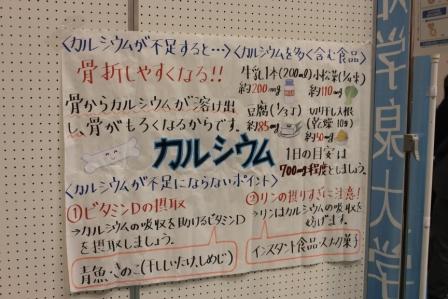 〈カルシウムが不足すると…〉
骨折しやすくなる!!
骨からカルシウムが溶け出
し、骨がもろくなるからです。
〈カルシウムを多く含む食品〉
牛乳1本(200ml) 小松菜(1/4束)
約200mg 約110mg
豆腐(1/4丁) 切り干し大根
(乾燥10g)
約85mg 約50mg
カルシウム
1日の目安は
700mg程度としましょう。
〈カルシウムが不足にならないポイント〉
①ビタミンDの摂取
→カルシウムの吸収を助けるビタミンD
を摂取しましょう。
青魚、きのこ(干ししいたけ、しめじ)
②リンの摂りすぎに注意!
→リンはカルシウムの吸収を
妨げます。
インスタント食品・スナック菓子
学泉大学